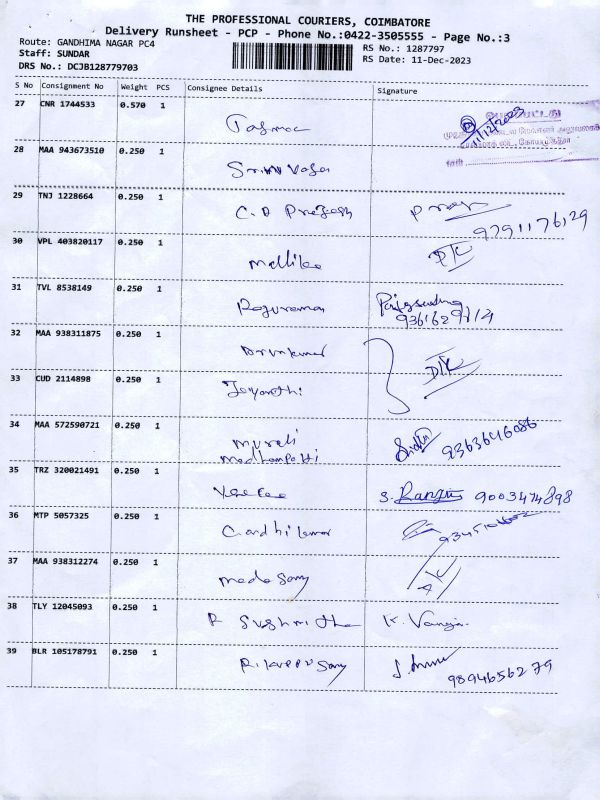 THE PROFESSIONAL COURIERS, COIMBATORE
Delivery Runsheet - PCP - Phone No.:0422-3505555 - Page No.:3
Route: GANDHIMA NAGAR PC4
RS No.: 1287797
Staff: SUNDAR
RS Date: 11-Dec-2023
DRS No.: DCJB128779703
S No Consignment No Weight PCS Consignee Details Signature
27 CNR 1744533 0.570 1 Tasmac
11/12/2023
28 MAA 943673510 0.250 1 Srinivasa
29 TNJ 1228664 0.250 1 C.D Prejesh
9791176129
30 VPL 403820117 0.250 1 Mallika D/C
31 TVL 8538149 0.250 1 Raguraman
32 MAA 938311875 0.250 1 Arunkumar
D/C
33 CUD 2114898 0.250 1 Jeyanthi
34 MAA 572590721 0.250 1 Murali 9363646086
Madhampatti
35 TRZ 320021491 0.250 1 S. Ranjni 9003474898
36 MTP 5057325 0.250 1 Gandhi kumar
37 MAA 938312274 0.250 1 Mada Samy D/C
38 TLY 12045093 0.250 1 R Sushmitha K. Vanaja
39 BLR 105178791 0.250 1 R. Karuppusamy
9894656279